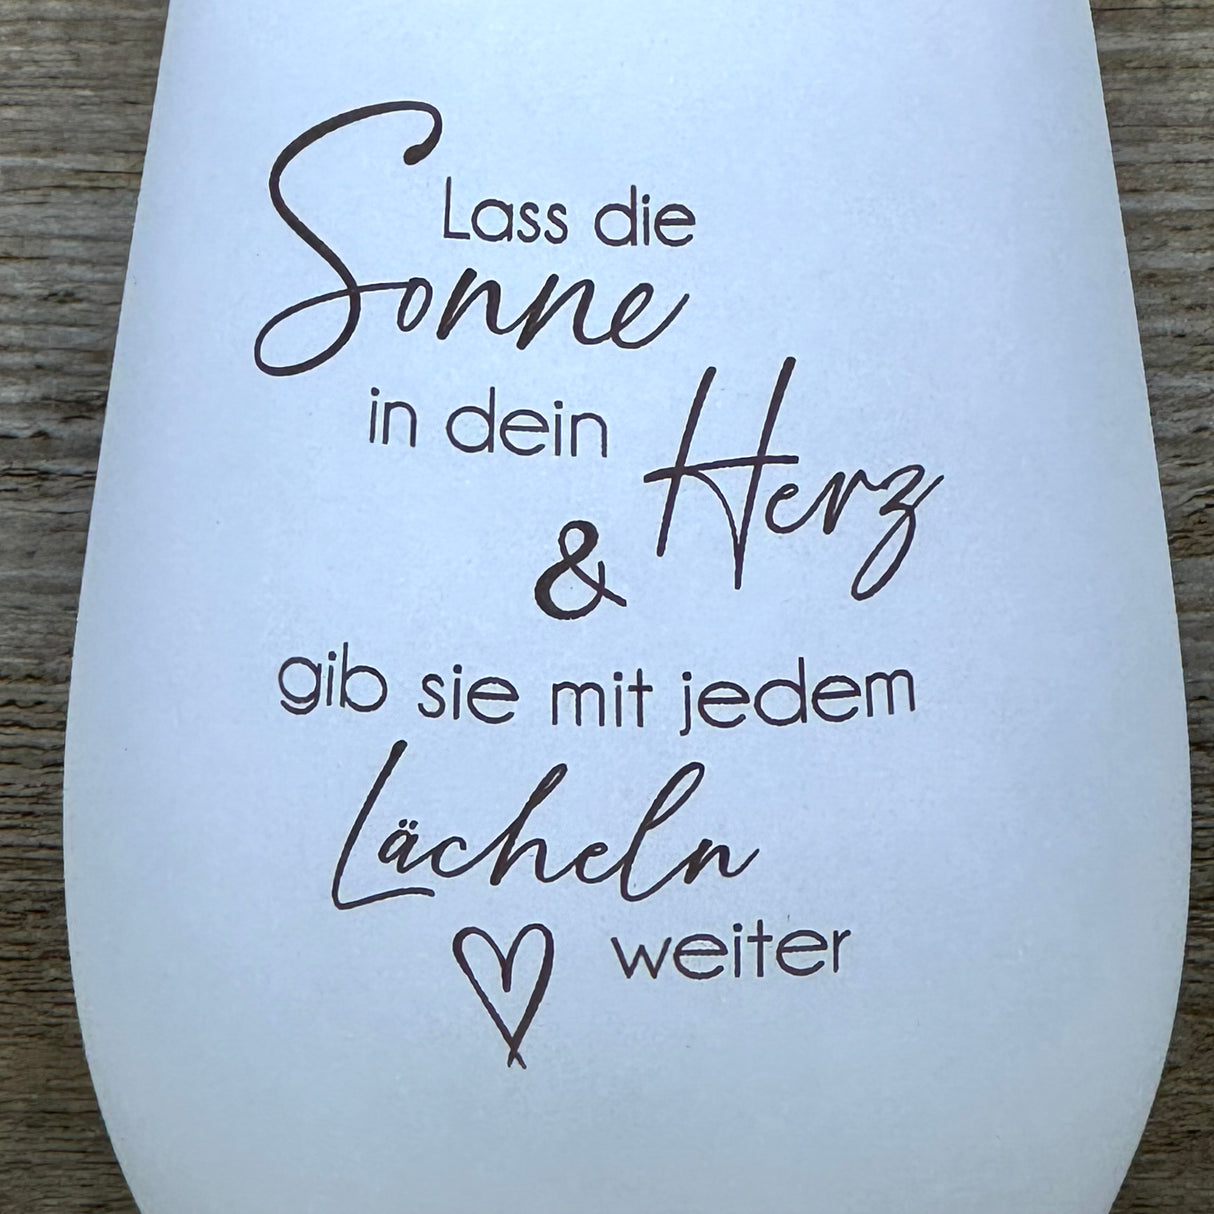 Lass die
Sonne
in dein
Herz
&
gib sie mit jedem
Lächeln
weiter